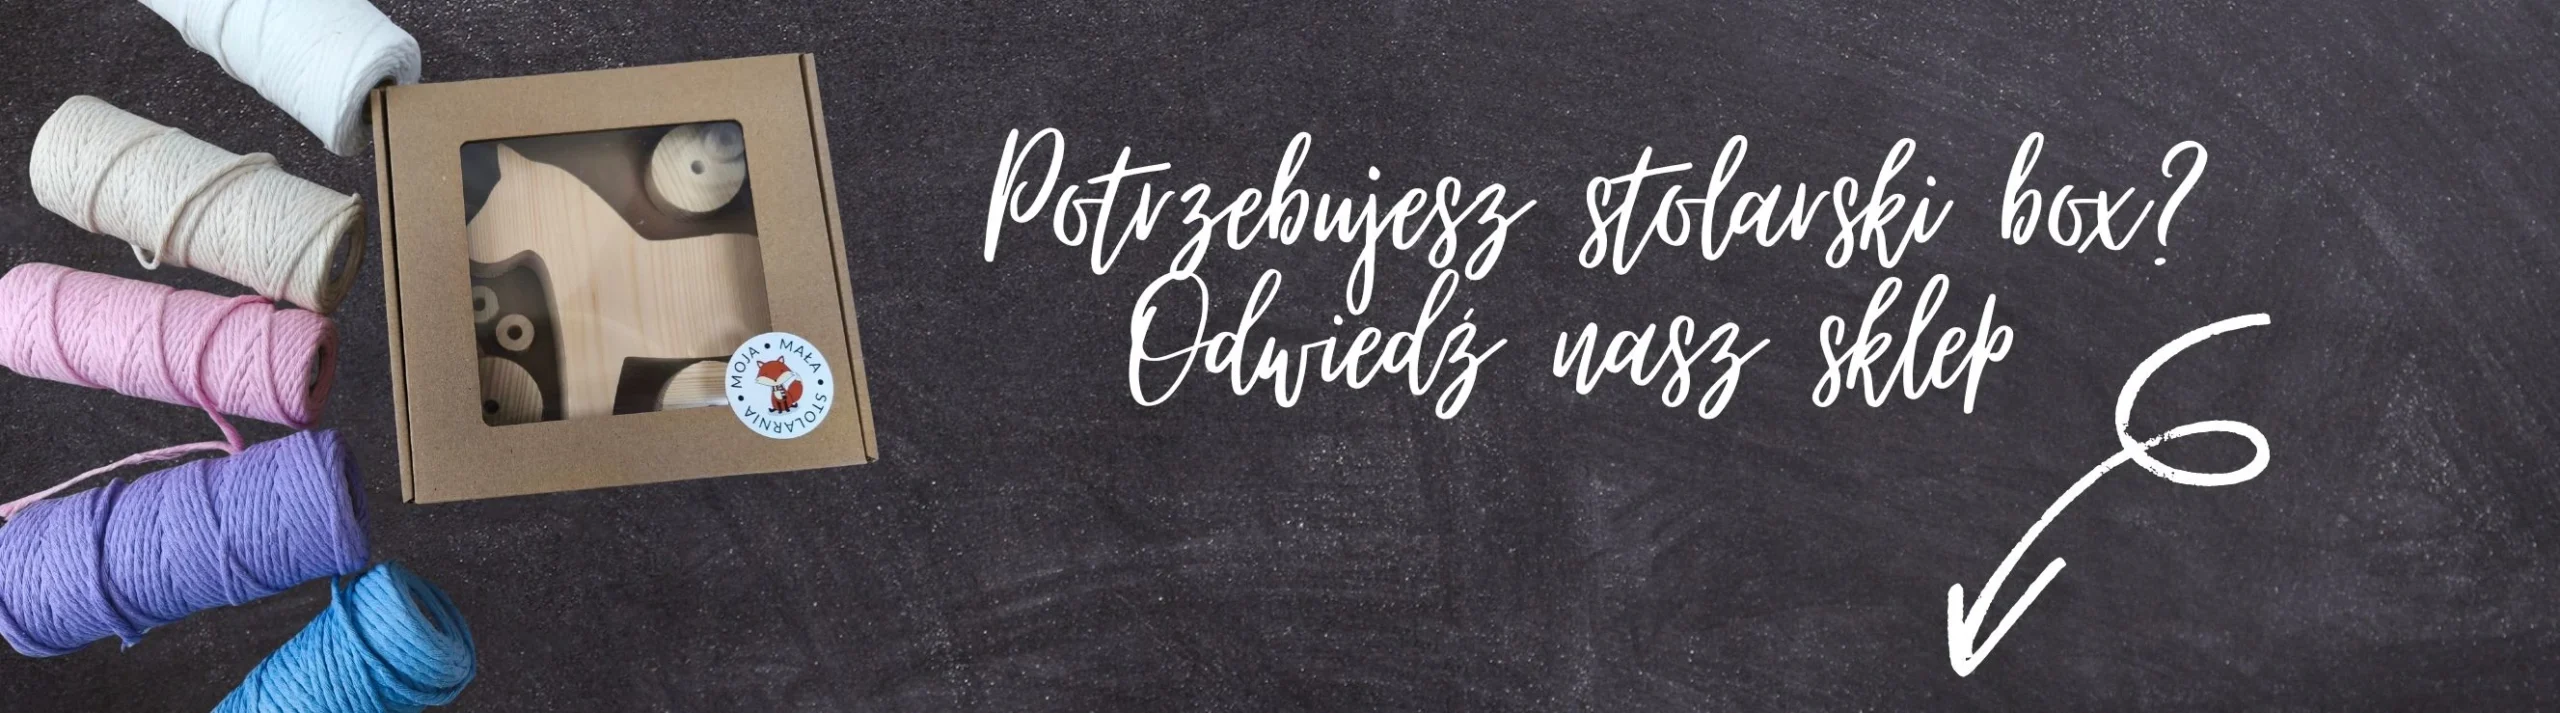 Potrzebujesz stolarski box?
Odwiedź nasz sklep
MOJA • MAŁA • STOLARNIA •